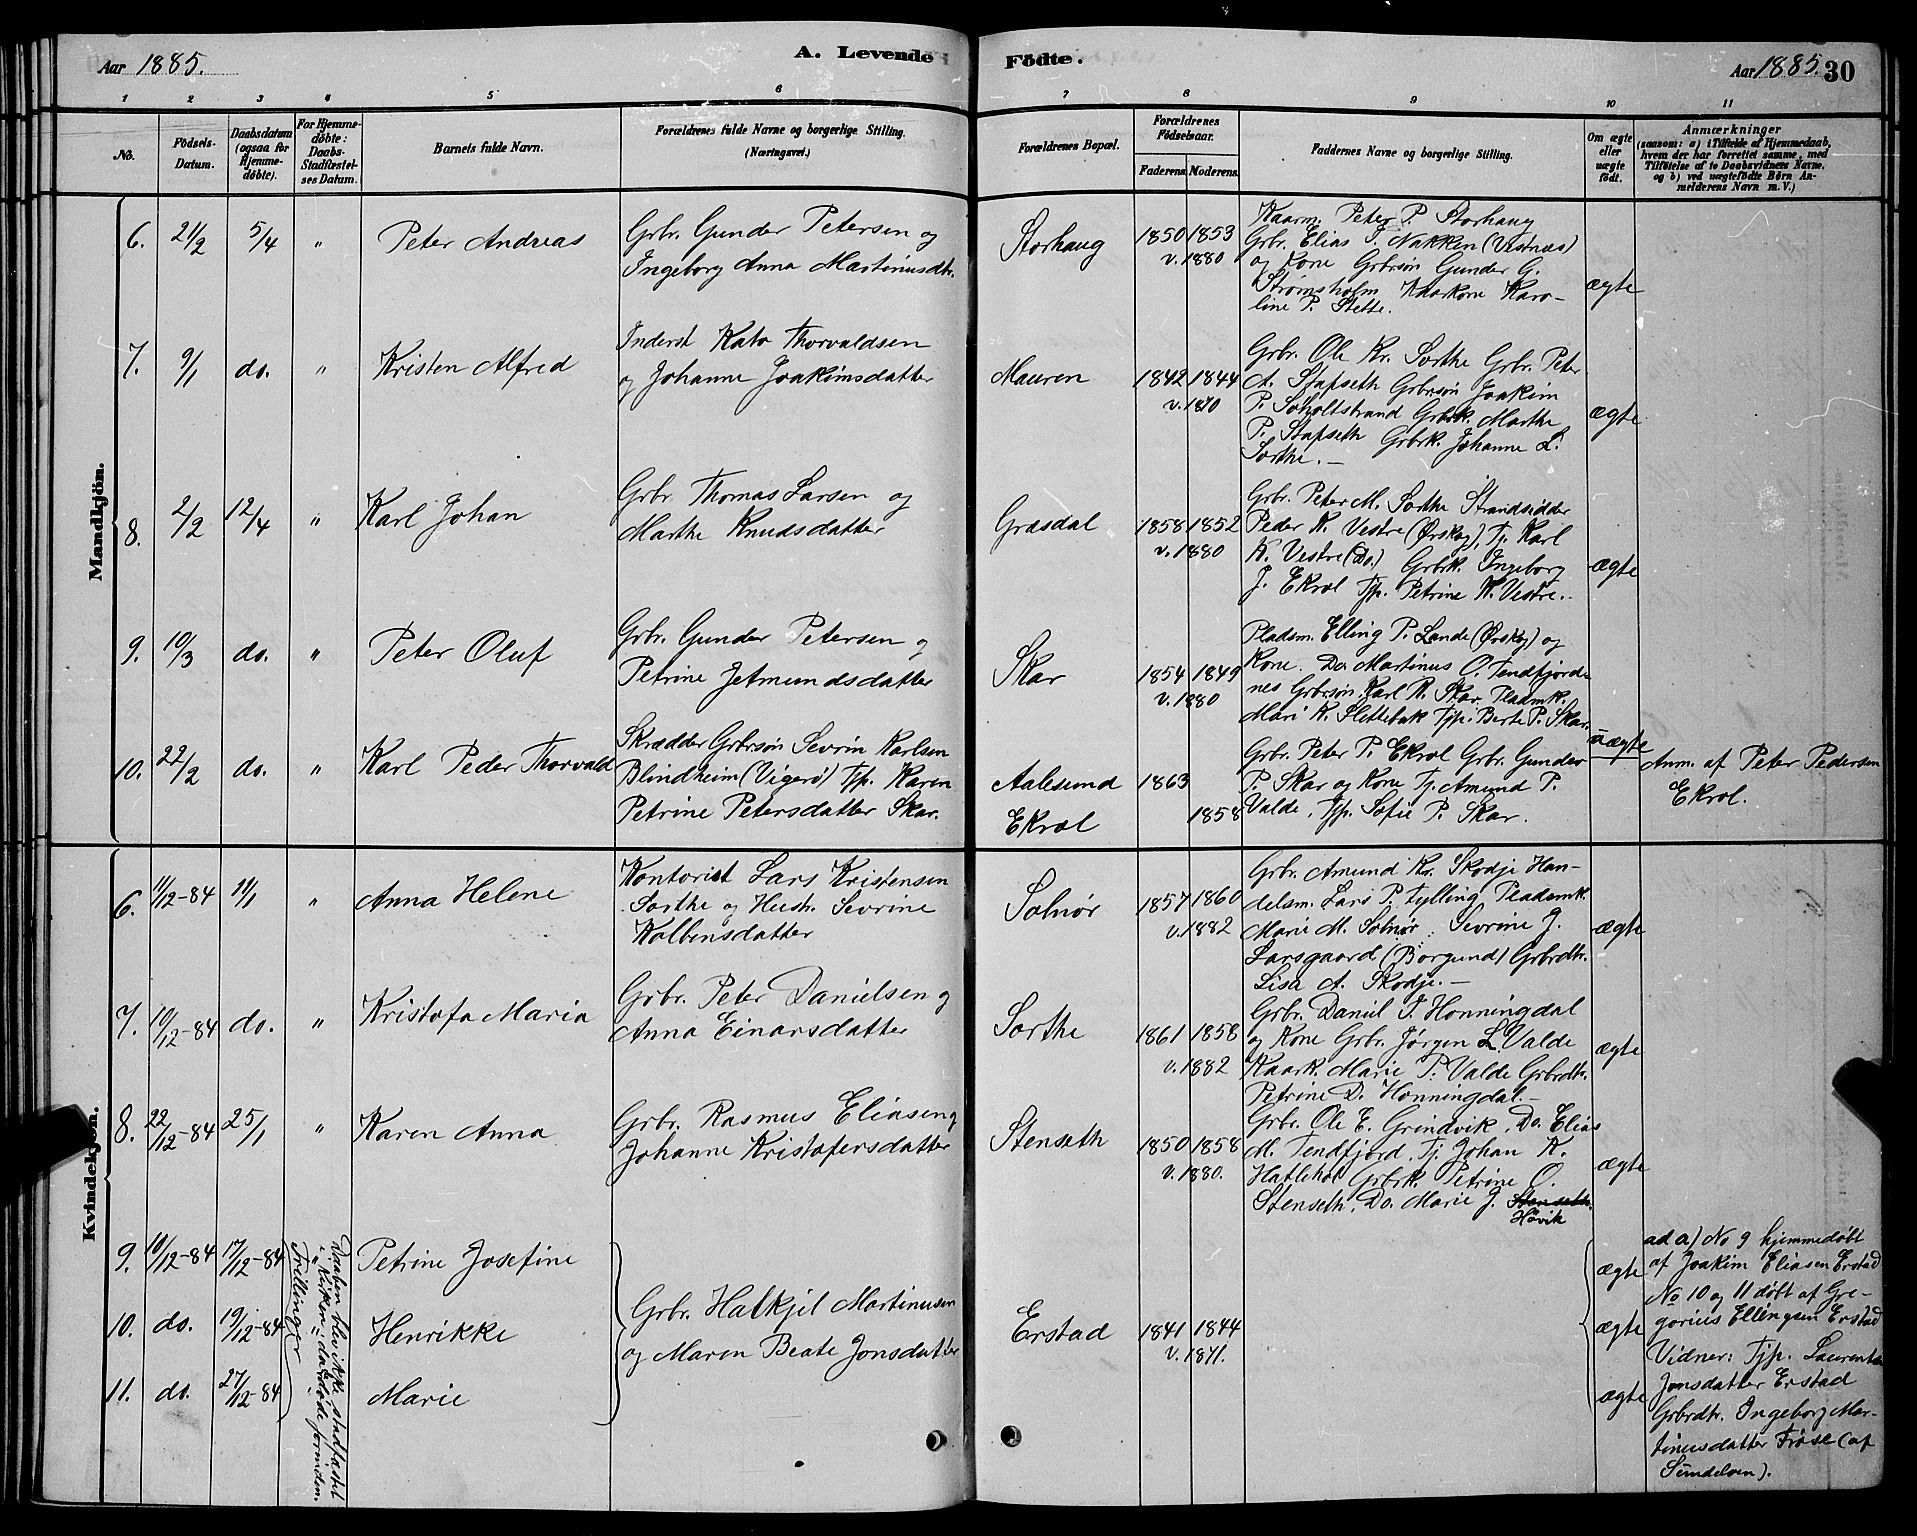 Aar 1885.
A. Levende Födte.
Aar 1885. 30
1 2 3 4 5 6 7 8 9 10 11
No.
Födsels-
Datum.
Daabsdatum
(ogsaa for
Hjemme-
döbte).
For Hjemme-
döbte:
Daabs-
Stadfæstel-
ses Datum.
Barnets fulde Navn.
Forældrenes fulde Navne og borgerlige Stilling.
(Næringsvei.)
Forældrenes Bopæl.
Forældrenes
Födselsaar.
Faderens Moderens
Faddernes Navne og borgerlige Stilling.
Om ægte
eller
uægte
födt.
Anmærkninger
(saasom: a) i Tilfælde af Hjemmedaab,
hvem der har forrettet samme, med
Tilföielse af to Daabsvidners Navne,
og b) ved uægtefödte Börn An-
melderens Navn m. V.)
Mandkjön.
6. 21/2 5/4 " Peter Andreas
Grbr. Gunder Petersen og
Ingeborg Anna Martinusdtr.
Storhaug 1850 1853
v. 1880
Kaarm. Peter P. Storhaug
Grbr. Elias T. Nakken (Vestnæs)
og Kone Grbrsøn Gunder G.
Strømsholm Kaarkone Karo-
line P. Stette.
ægte
7. 9/1 do. " Kristen Alfred
Inderst Kato Thorvaldsen
og Johanne Joakimsdatter
Mauren 1842 1844
v. 1870
Grbr. Ole Kr. Sorthe Grbr. Peter
A. Stafseth Grbrsøn Joakim
P. Søholtstrand Grbrk. Marthe
P. Stafseth Grbrk. Johanne L.
Sorthe. —
ægte
8. 2/2 12/4 " Karl Johan
Grbr. Thomas Larsen og
Marthe Knudsdatter
Grasdal 1858 1852
v. 1880
Grbr. Peter M. Sorthe Strandsidder
Peder K. Vestre (Ørskog), Tj. Karl
K. Vestre (Do.) Grbrk. Ingeborg
J. Ekrol Tjp. Petrine K. Vestre.
ægte
9. 10/3 do. " Peter Oluf
Grbr. Gunder Petersen og
Petrine Jetmundsdatter
Skar 1854 1849
v. 1880
Pladsm. Elling P. Lande (Ørskog) og
Kone. Do Martinus O. Tendfjord-
nes Grbrsøn. Karl R. Skar Pladmk.
Mari K. Slettebak Tjp. Berte P. Skar.
10. 22/2 do. " Karl Peder Thorvald
Skrædder Grbrsøn Sevrin Karlsen
Blindheim (Vigerö) Tjp. Karen
Petrine Petersdatter Skar.
Aalesund 1863
Ekrol 1858
Grbr. Peter P. Ekrol Grbr. Gunder
P. Skar og Kone Tj. Amund P.
Valde, Tjp. Sofie P. Skar.
uægte
Anm. af Peter Pedersen
Ekrol.
Kvindekjön.
6. 11/12-84 11/1 " Anna Helene
Kontorist Lars Kristensen
Sorthe og Hustr. Sevrine
Kolbensdatter
Solnør 1857 1860
v. 1882
Grbr. Amund Kr. Skodje Han-
delsm. Lars P. Fylling Pladsmk.
Marie M. Solnør. Sevrine J.
Larsgaard (Borgund) Grbrdtr.
Lisa A. Skodje. —
ægte
7. 10/12-84 do. " Kristofa Maria
Grbr. Peter Danielsen og
Anna Einarsdatter
Sorthe 1861 1858
v. 1882
Grbr. Daniel T. Honningdal
og Kone Grbr. Jørgen L. Valde
Kaark. Marie P. Valde Grbrdtr.
Petrine D. Honningdal. —
ægte
8. 22/12-84 25/1 " Karen Anna
Grbr. Rasmus Eliasen og
Johanne Kristofersdatter
Stenseth 1850 1858
v. 1880.
Grbr. Ole E. Grindvik. Do. Elias
M. Tendfjord, Tj. Johan K.
Hatlehol Grbrk. Petrine O.
Stenseth. Do. Marie J. Stenseth.
Høvik
ægte
9. 10/12-84 17/12-84 Petrine Josefine
10. do. 19/12-84 Henrikke
11. do. 27/12-84 Marie
Trillinger
Daaben blev ikke stadfæstet
i Kirken; da døde forinden.
Grbr. Halkjel Martinusen
og Maren Beate Jonsdatter
Erstad 1841 1844
v. 1871.
ægte
ægte
ægte
ad a) No 9 hjemmedøbt
af Joakim Eliasen Erstad
No 10 og 11 døbt af Gre-
gorius Ellingsen Erstad
Vidner: Tjp. Laurentse
Jonsdatter Erstad
Grbrdtr. Ingeborg Mar-
tinusdatter Frøse (af
Sundelven).